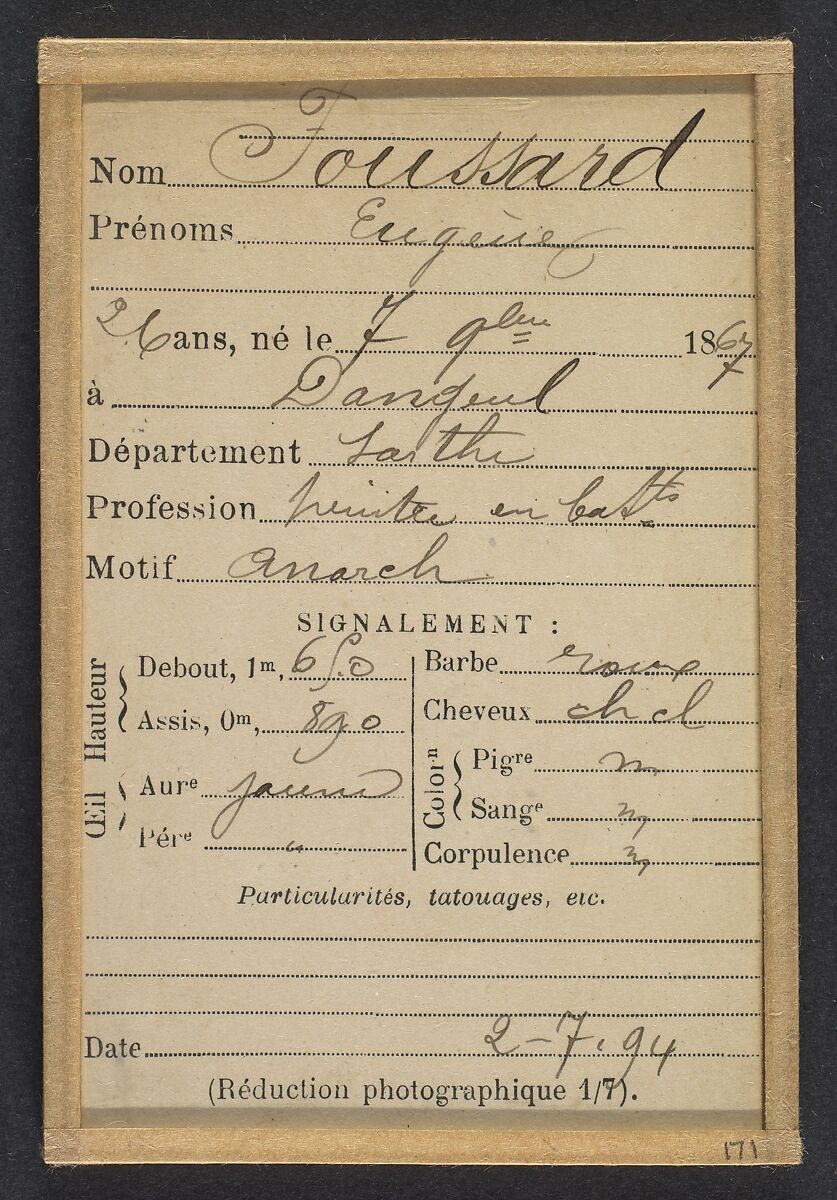 Nom Foussard
Prénoms Eugène
26 ans, né le 7 9bre 1867
à Dangeul
Département Sarthe
Profession peintre en batts
Motif anarch
SIGNALEMENT :
Hauteur
Debout, 1m, 65.0
Assis, 0m, 890
Œil
Aure jaune
Pére "
Barbe roux
Cheveux ch cl
Colorn
Pigre m
Sange m
Corpulence m
Particularités, tatouages, etc.
Date 2-7.94
(Réduction photographique 1/7).
171